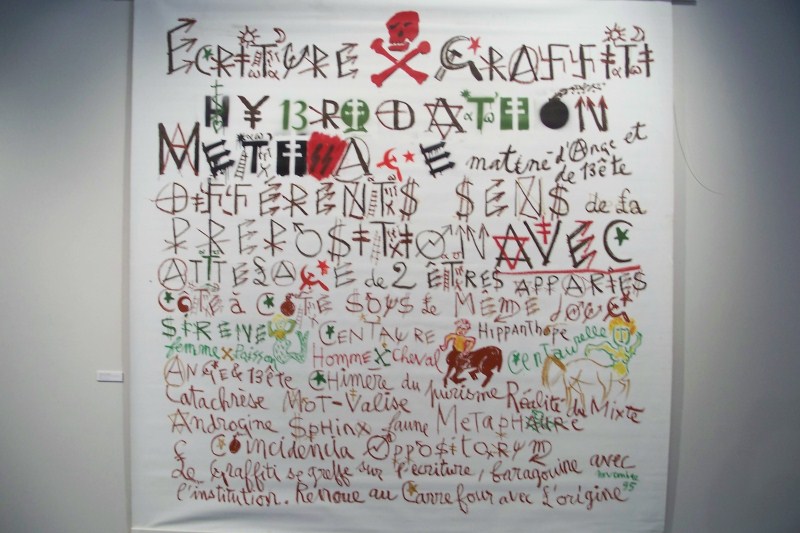 ÉCRITURE GRAFFITI
HYBRIDATION
METISSAGE matiné d'Ange et
de Bête
DIFFÉRENTS SENS de La
PRÉPOSITION AVEC
ATTELAGE de 2 ÊTRES APPARIÉS
CÔTE à CÔTE SOUS LE MÊME JOUG
SIRENE CENTAURE HIPPANTHOPE Centaurelle
femme x Poisson HOMME x Cheval
ANGE & BÊTE CHIMÈRE du purisme Réalité du Mixte
Catachrèse MOT-VALISE
Androgine SPHINX faune METAPHAURE
COINCIDENCIA OPPOSITORUM
Le graffiti se greffe sur l'écriture, baragouine avec
l'institution. Renoue au Carrefour avec L'origine
novembre
95